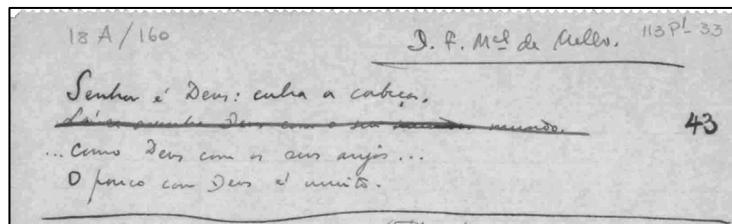 18 A / 160
D. F. Mel de Mello.
113P1-33
Senhor é Deus: cubra a cabeça.
Deus com o seu mundo.
43
... como Deus com os seus anjos ...
O pouco com Deus é muito.